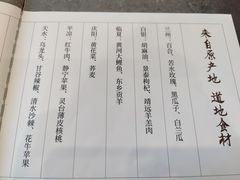 来自原产地 道地食材
兰州：百合、苦水玫瑰、黑瓜子、白兰瓜
白银：胡麻油、景泰枸杞、靖远羊羔肉
临夏：黄河水鲤鱼、东乡贡羊
庆阳：黄花菜、荞麦
平凉：红牛肉、静宁苹果、灵台薄皮核桃
天水：乌龙头、甘谷辣椒、清水沙棘、花牛苹果